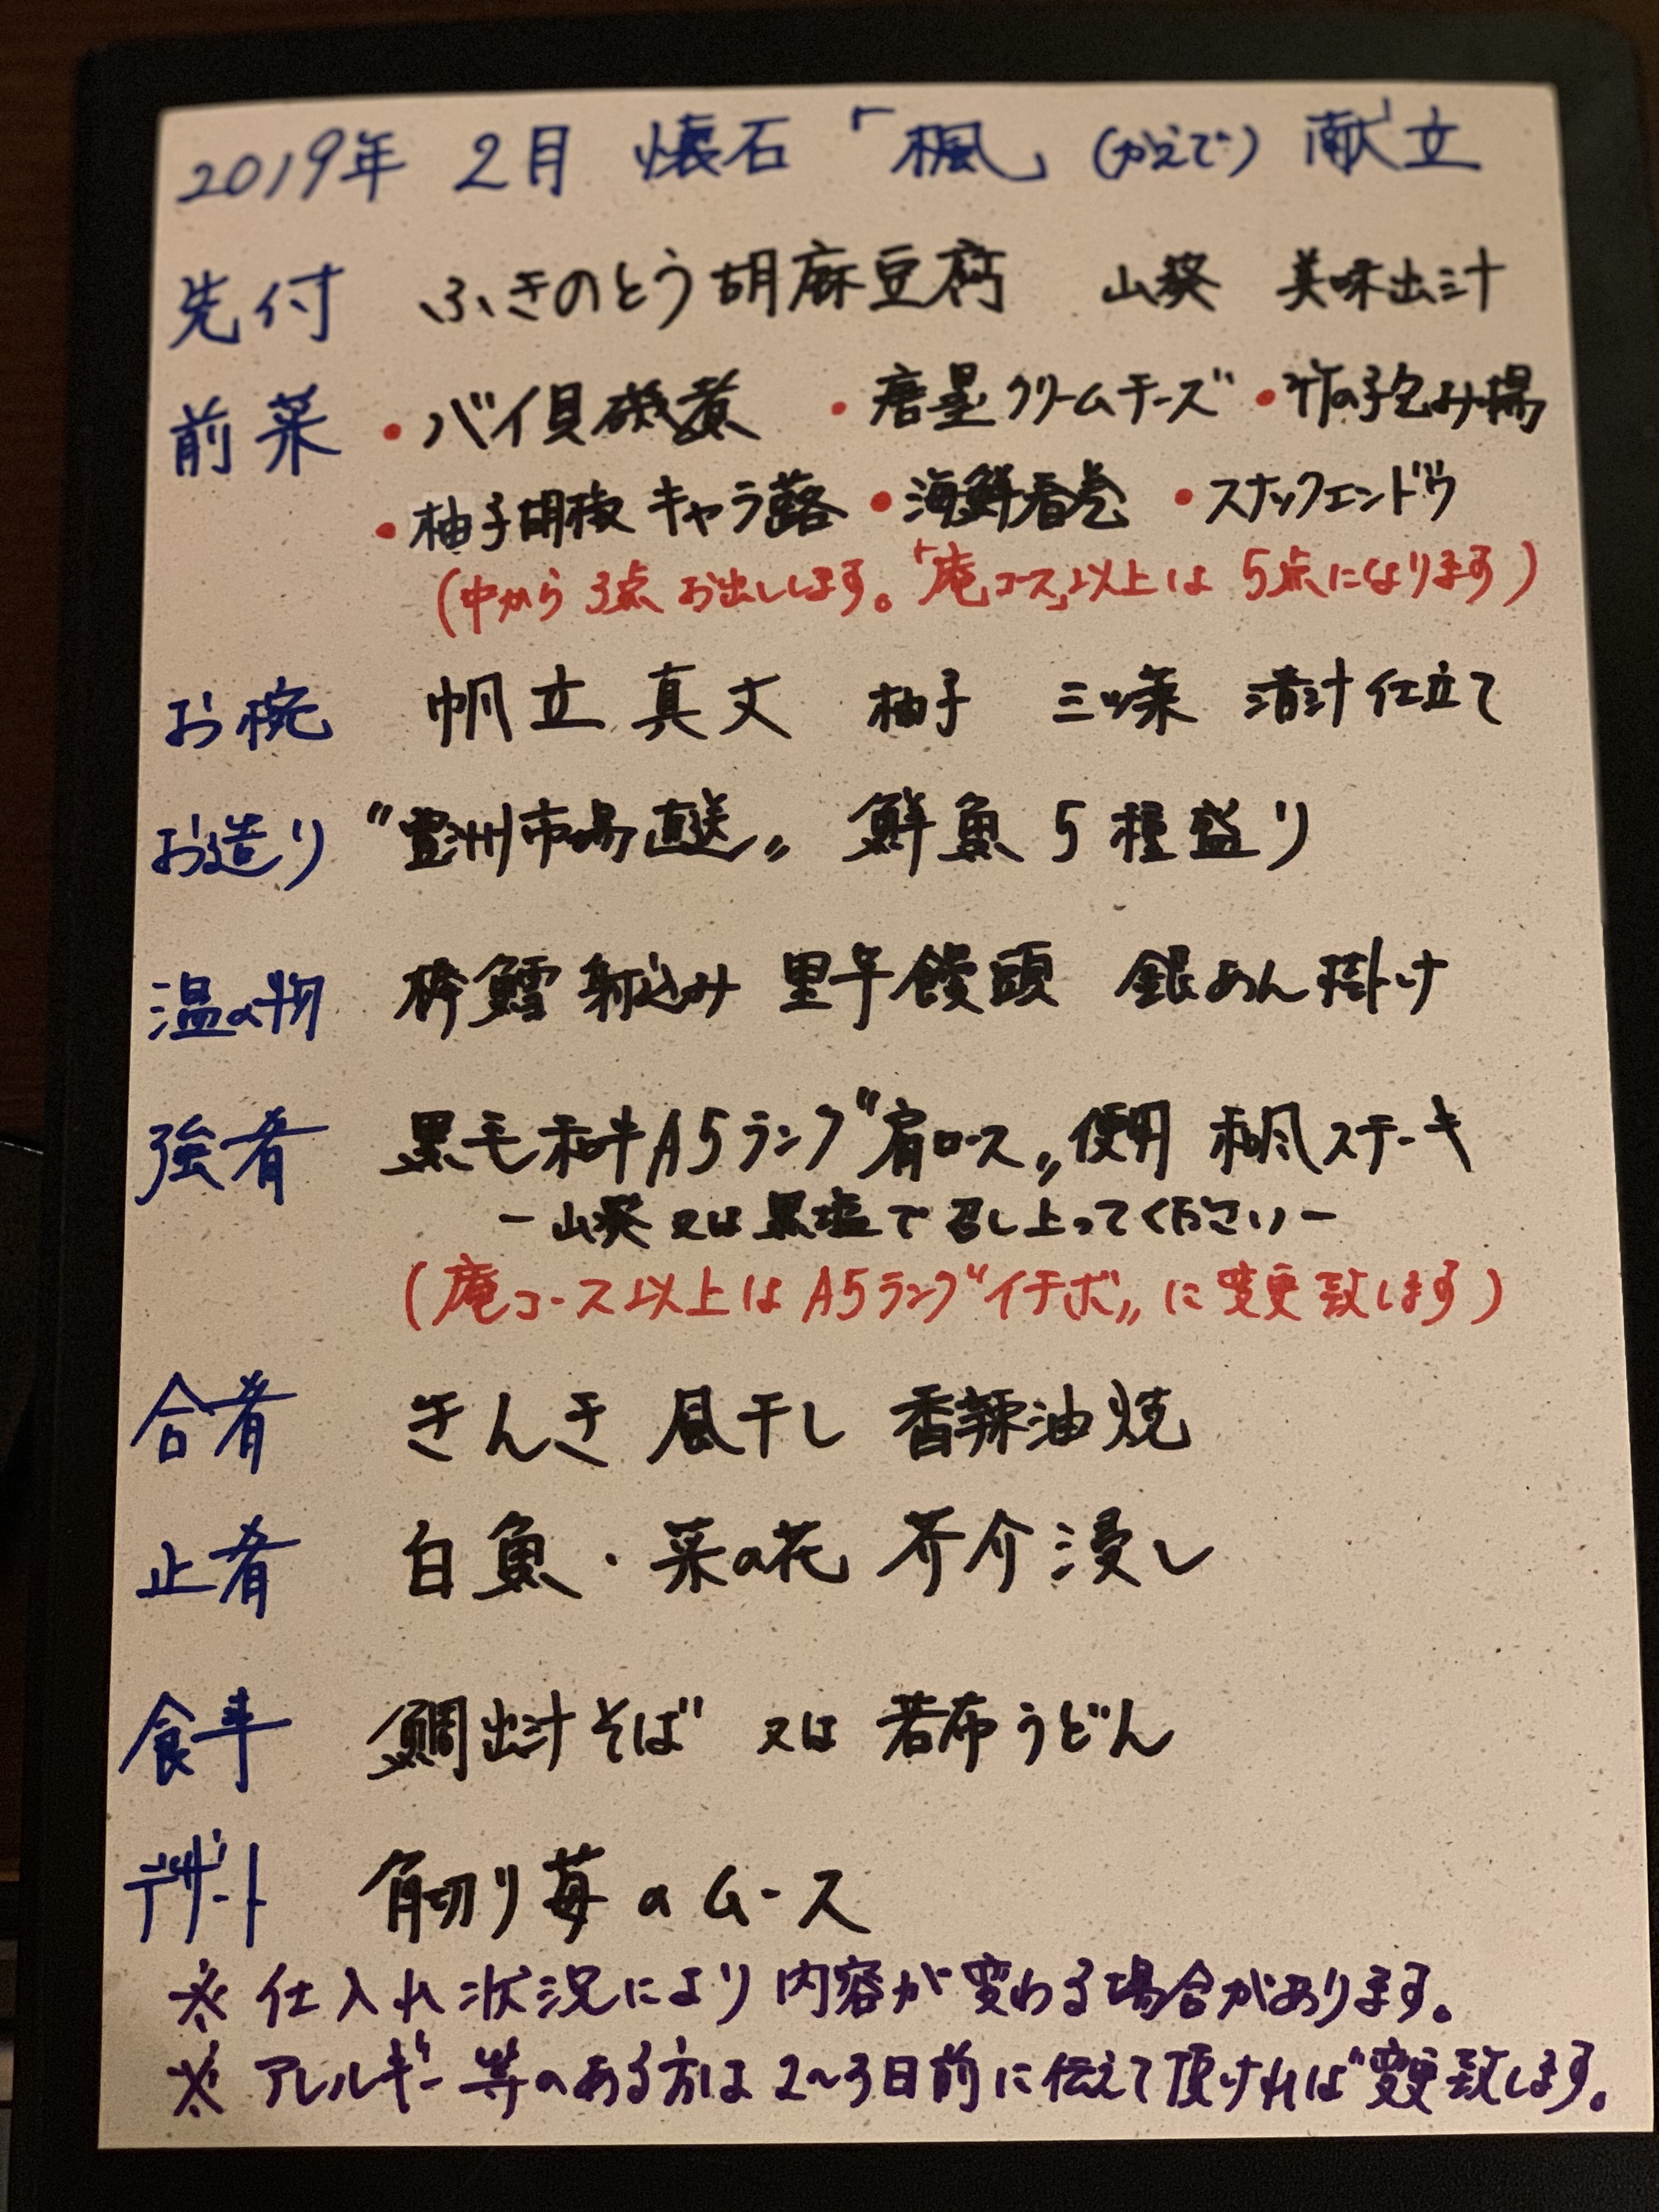 2019年 2月 懐石「楓」(かえで) 献立
先付 ふきのとう胡麻豆腐 山葵 美味出汁
前菜 ・バイ貝磯煮 ・唐墨クリームチーズ ・竹の子包み揚
・柚子胡椒キャラ蕗 ・海鮮春巻 ・スナックエンドウ
(中から3点お出しします。「庵コース」以上は5点になります)
お椀 帆立真丈 柚子 三ツ葉 清汁仕立て
お造り "豊洲市場直送" 鮮魚5種盛り
温の物 鱈射込み 里芋饅頭 銀あん掛け
強肴 黒毛和牛A5ランク"肩ロース"使用 和風ステーキ
-山葵又は黒塩で召し上ってください-
(庵コース以上はA5ランク"イチボ"に変更致します)
合肴 きんき風干し 香辣油焼
止肴 白魚・菜の花 芥介浸し
食事 鯛出汁そば 又は 若布うどん
デザート 角切り苺のムース
※ 仕入れ状況により内容が変わる場合があります。
※ アレルギー等のある方は2~3日前に伝えて頂ければ変更致します。